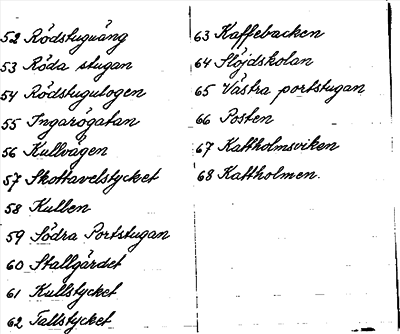 52 Rödstuguäng
53 Röda stugan
54 Rödstugulogen
55 Ingarögatan
56 Kullvägen
57 Skottavelstycket
58 Kullen
59 Södra Portstugan
60 Stallgärdet
61 Kullstycket
62 Tallstycket
63 Kaffebacken
64 Slöjdskolan
65 Västra portstugan
66 Posten
67 Kattholmsviken
68 Kattholmen.